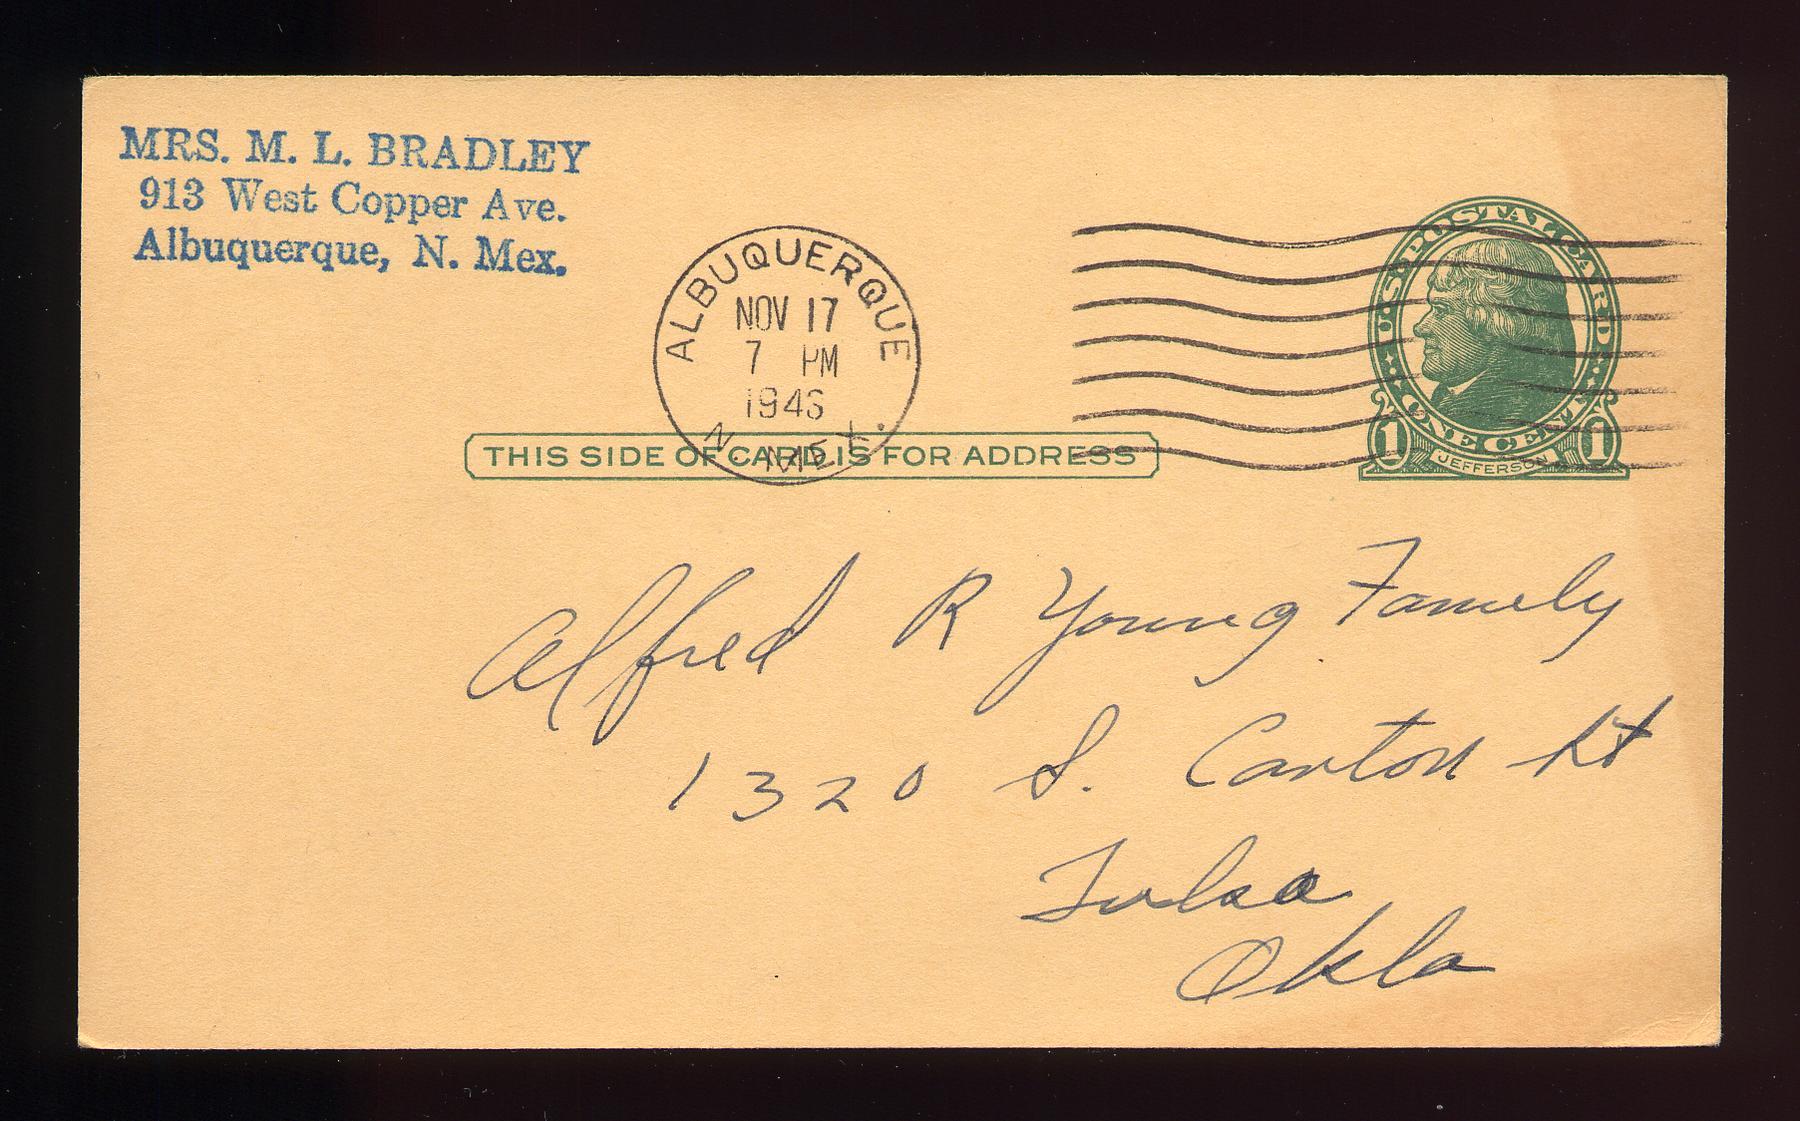 MRS. M. L. BRADLEY
913 West Copper Ave.
Albuquerque, N. Mex.
ALBUQUERQUE
NOV 17
7 PM
1946
N. MEX.
U.S. POSTAL CARD
ONE CENT
1 JEFFERSON 1
THIS SIDE OF CARD IS FOR ADDRESS
Alfred R Young Family
1320 S. Canton St
Tulsa
Okla